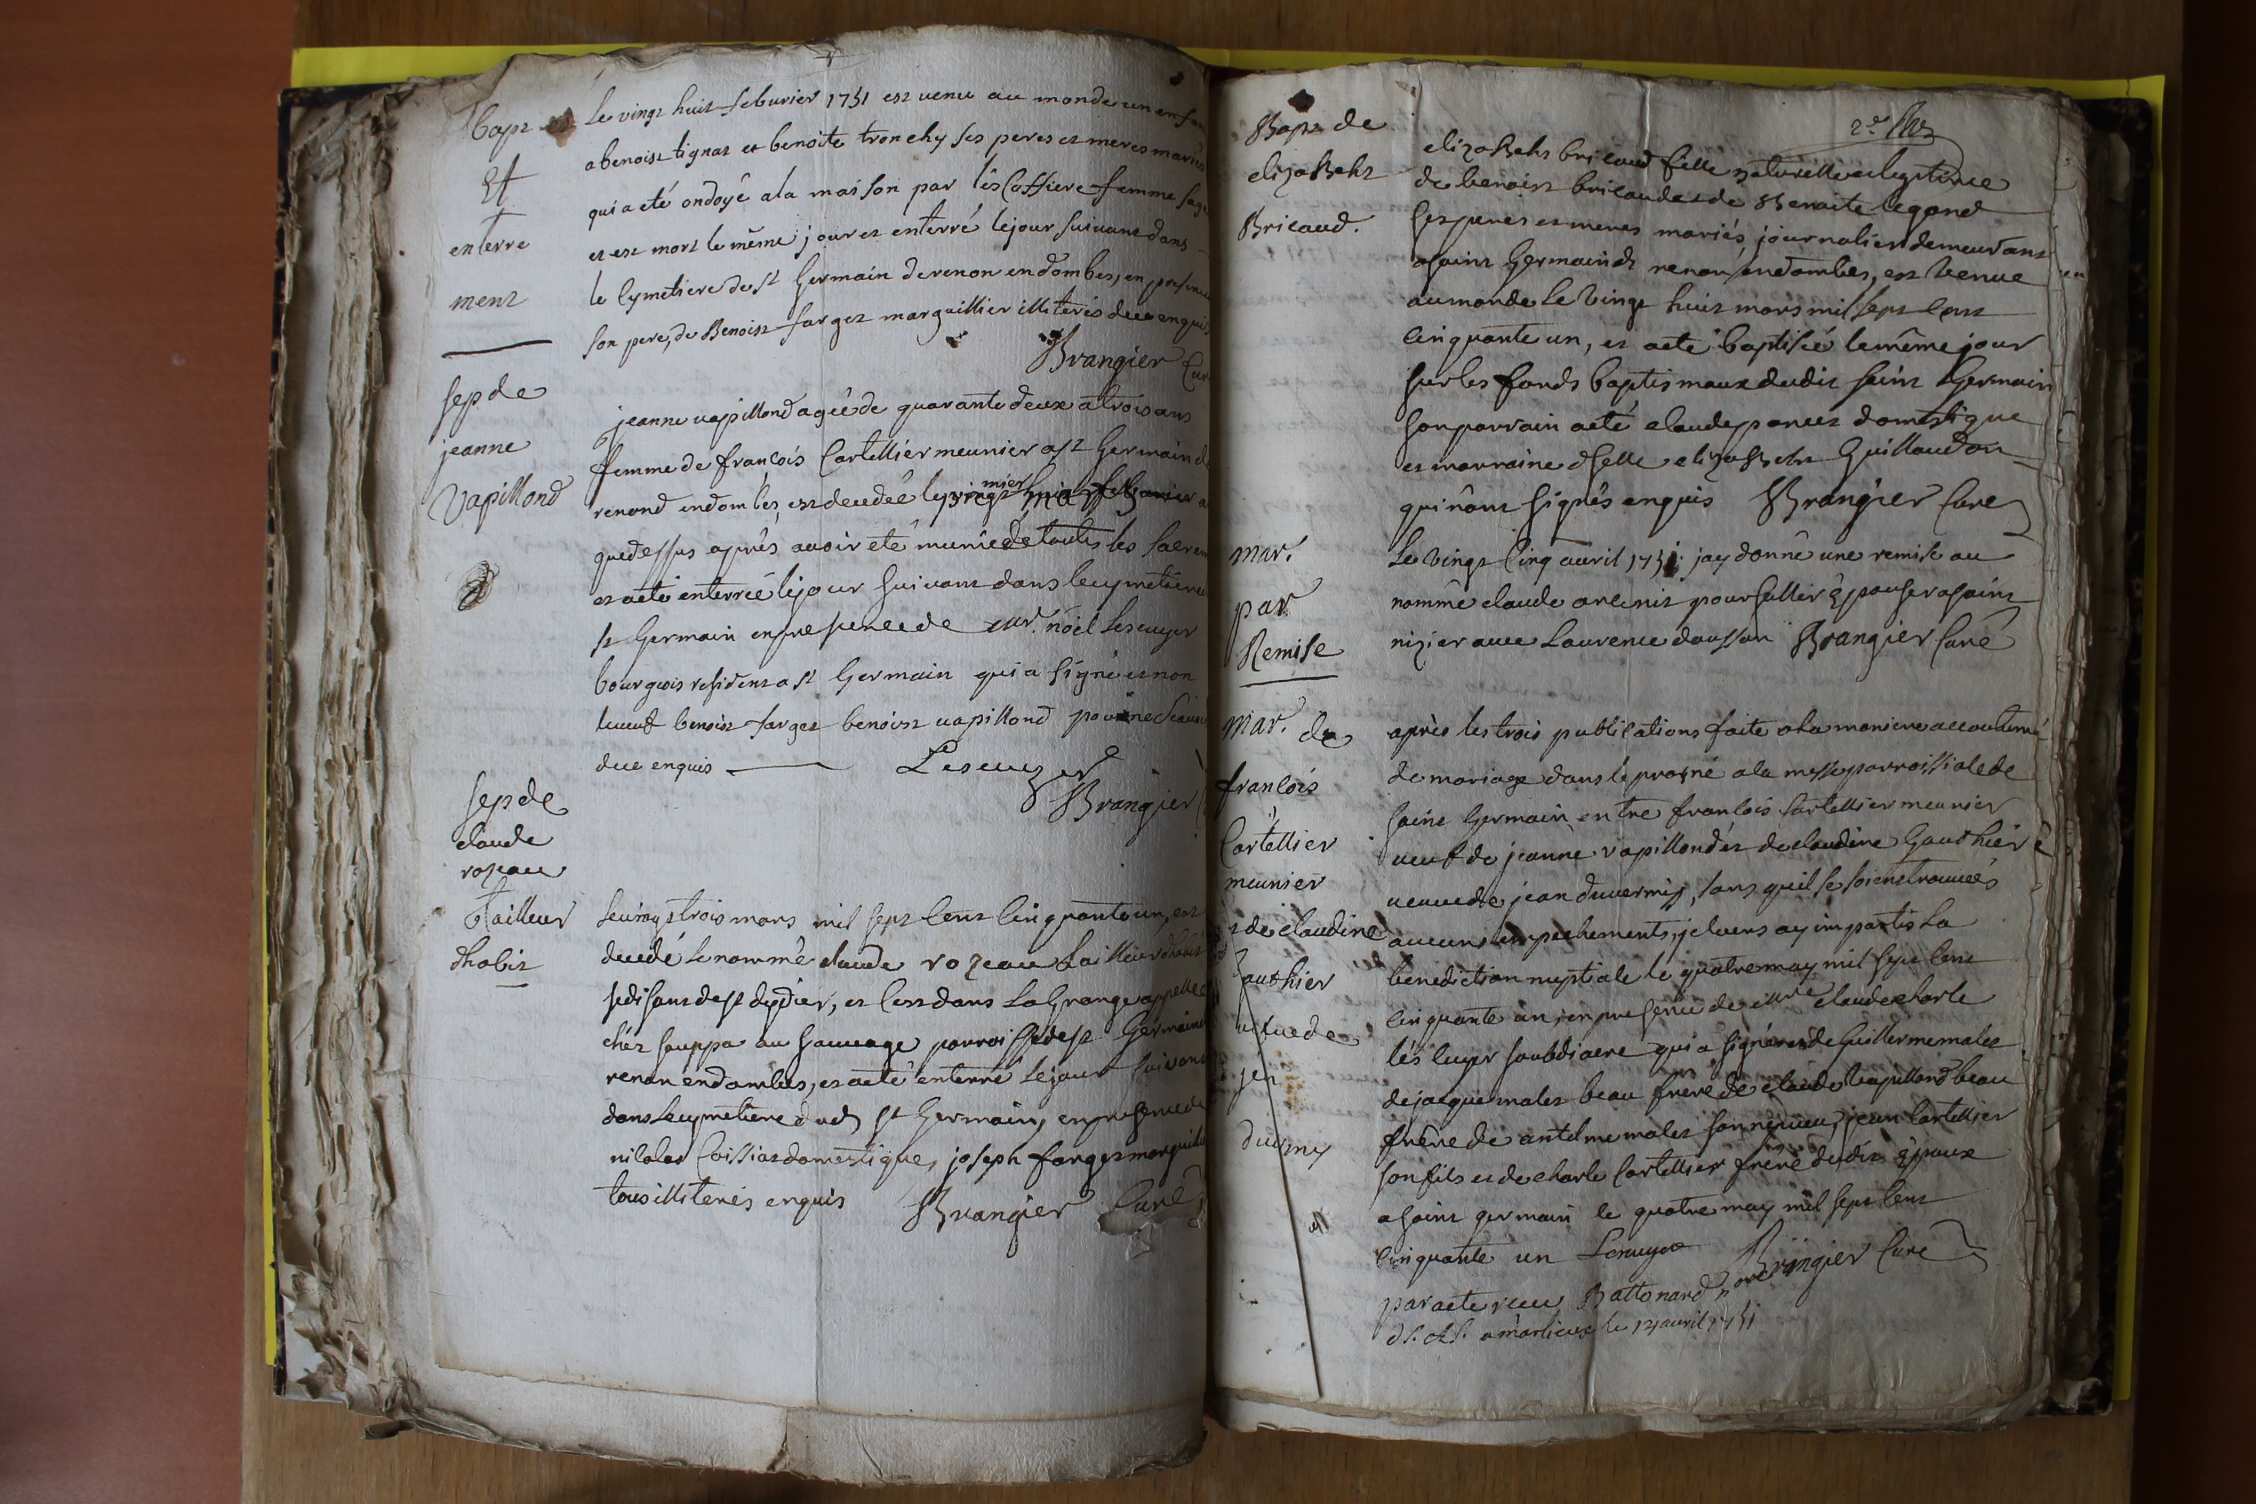 Bapt
Et
enterre
ment
le vingt huit feburier 1751 est venu au monde un enfan
a benoist tignat et benoite tronchy ses peres et meres mariés
qui a eté ondoyé a la maison par femme sage
et est mort le même jour et enterré le jour suivant dans
le cymetiere de st Germain de renon en dombes, en presence
son pere, de Benoist farget marguillier illiterés de ce enquis
Brangier Cur
sep. de
jeanne
Vapillond
jeanne vapillond agée de quarante deux a trois ans
femme de francois Cartellier meunier a st Germain de
renond en dombes, est decedée le
que dessus aprés avoir eté munie de toutes les sacrem
et a eté enterrée le jour suivant dans le cymetiere
st Germain en presence de Mr. nöel Lescuyer
bourgeois resident a st Germain qui a signé et non
benoist farget benoist vapillond pour ne scavoir
de ce enquis Lescuyer
Brangier
sep de
claude
rozeau
tailleur
dhabit
le vingt trois mars mil sept cent cinquante un, est
decedé le nommé claude rozeau tailleur dhabit
se disant de st didier, et c'est dans la Grange appellée
chéz souppa au sauvage parroisse de st Germain
renon en dombes, et a eté enterré le jour suivant
dans le cymetiere dud st Germain, en presence de
nicolas domestique, joseph farget marguilli
tous illiterés enquis Brangier Curé
2e
Bapt de
elizabeht
Bricaud.
elizabeht bricaud fille naturelle et legitime
de benoist bricaud et de Benoite legond
ses peres et meres mariés, journalier demeurant
a saint Germain de renon en dombes, est venue
au monde le vingt huit mars mil sept cent
cinquante un, et a eté baptisée le même jour
sur les fonds baptismaux dudit saint Germain
son parrain a eté claude poncet domestique
et marraine elizabeht Guillaudon
qui n'ont signés enquis Brangier Curé
mar.
par
Remise
Le vingt cinq avril 1751. jay donné une remise au
nommé claude pour saller épouser a saint
nizier avec Laurence Brangier Curé
mar. de
francois
Cartellier
meunier
et de claudine
Gauthier
veuve de
jen
duverny
après les trois publications faite a la maniere accoutumé
de mariage dans le prosne a la messe parroissiale de
saint Germain, entre francois Cartellier meunier
veuf de jeanne vapillond et de claudine Gauthier
veuve de jean duverny, sans qu'il se soient trouvés
aucuns empechements, je leurs ay impartis la
benediction nuptiale le quatre may mil sept cent
cinquante un, en presence de Mre claude charle
lescuyer soubdiacre qui a signé et de Guillerme malet
de jacque malet beau frere de claude vapillond beau
frere de antelme malet son neveu, jean Cartellier
son fils et de charle Cartellier frere dudit époux
a saint germain le quatre may mil sept cent
cinquante un Lescuyer Brangier Curé
par acte recu Battonard nore
a marlieux le 12 avril 1751